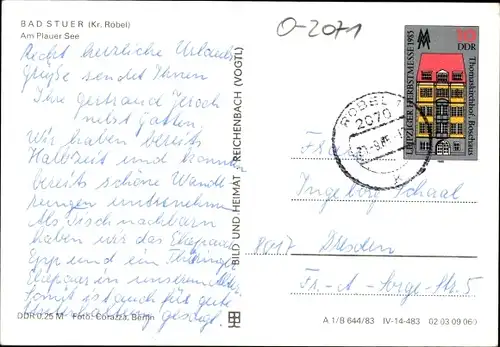 BAD STUER (Kr. Röbel)
Am Plauer See
O-2071
Recht herzliche Urlaubs-
grüße sendet Ihnen
Ihre Gertraud Jesoch
nebst Gatten.
Wir haben bereits
Halbzeit und konnten
bereits schöne Wande-
rungen unternehmen.
Als Tischnachbarn
haben wir das Ehepaar
Epp und ein Thüringer
Ehepaar in unserem Alter.
Somit ist auch für gute
Unterhaltung gesorgt.
DDR 0,25 M Foto: Corazza, Berlin
BILD UND HEIMAT REICHENBACH (VOGTL)
MM
10
DDR
LEIPZIGER HERBSTMESSE 1985
Thomaskirchhof, Bosehaus
RÖBEL
2070
Frau
Ingeborg Schaal
8017 Dresden
Fr.-A.-Sorge-Str. 5
A 1/B 644/83 IV-14-483 02 03 09 060